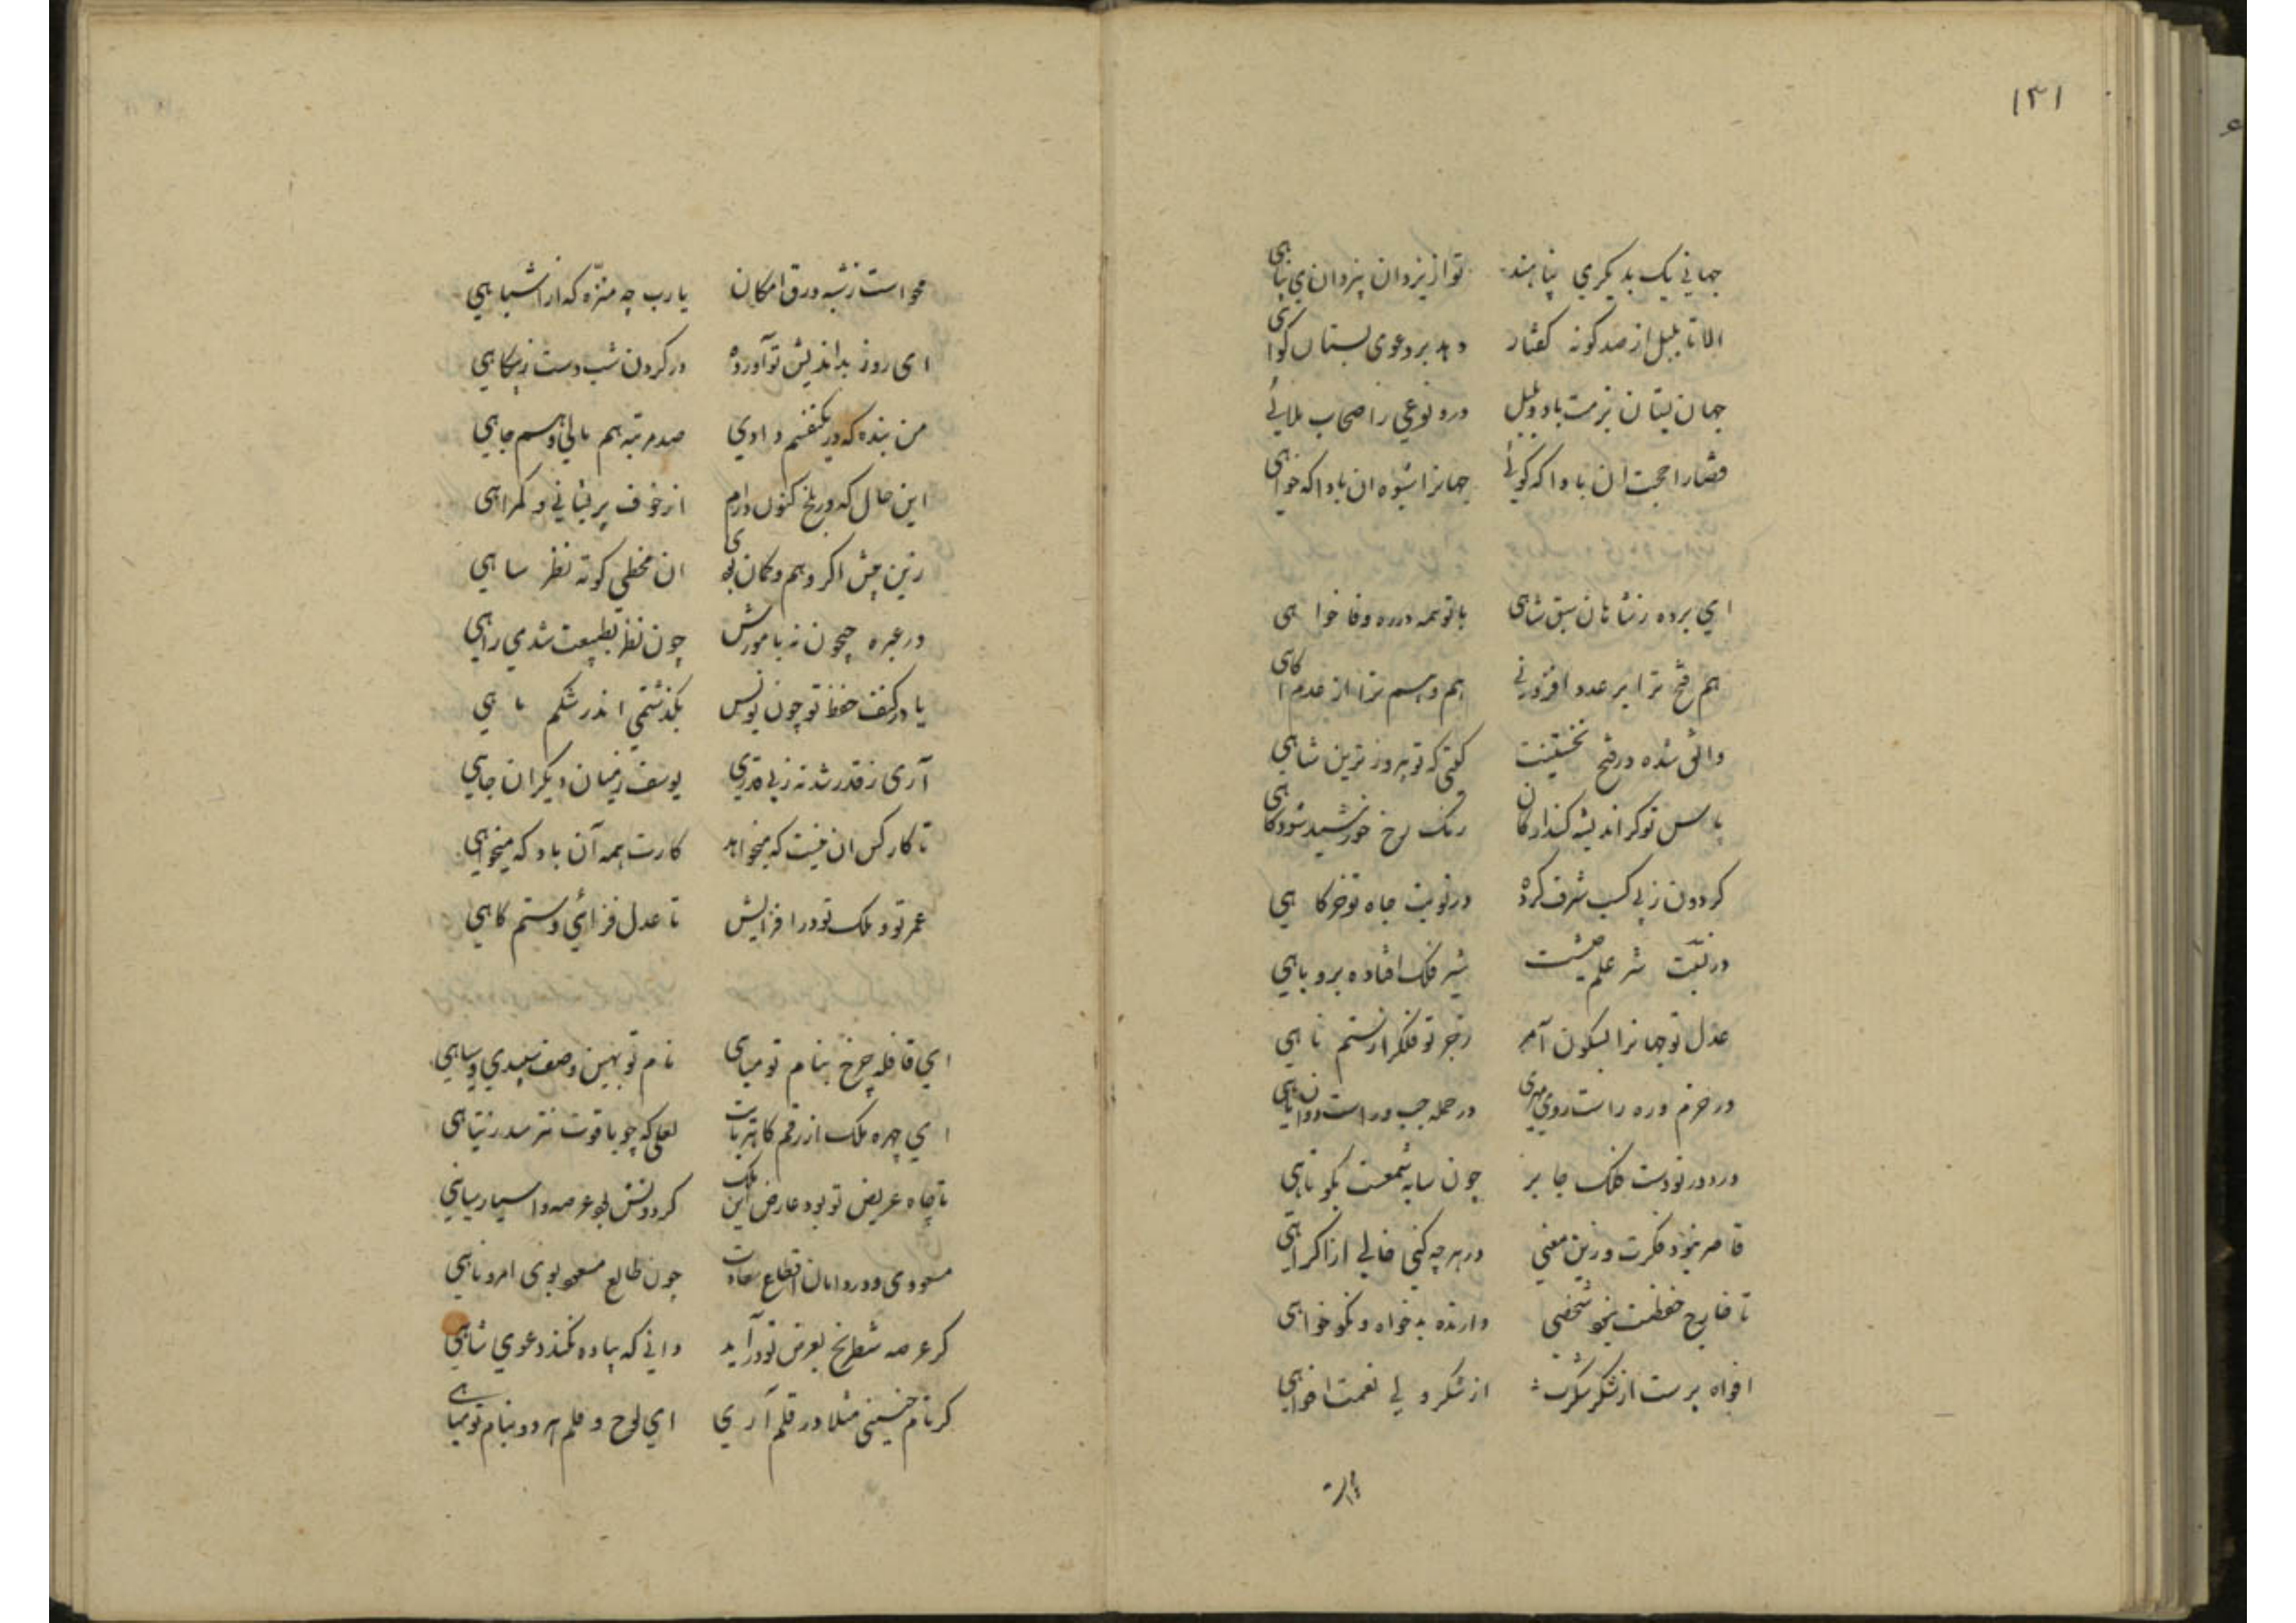 ۱۳۱
جهانی یک بدیکری پناهند تو از یزدان یزدان می پناهی
الا تا بلبل از صد کونه کفتار دهد بر دعوی بستان کواهی
جهان بستان بزمت باد و بلبل درو نوعی ز اصحاب ملاهی
قضا را حجت آن بادا که کوئی جهانرا شیوه ان بادا که خواهی
ای برده ز شاهان سبق شاهی با تو همه در ره وفا خواهی
هم فتح ترا بر عدو افزونی هم وهم ترا از عدم اکاهی
واثق شده در فتح نخستینت کیتی که تو پیروز ترین شاهی
پاس تو کر اندیشه کند در کان رنک رخ خورشید شود کاهی
کردون ز پی کسب شرف کرده در نوبت جاه تو خرکاهی
در نسبت شیر علم جیشت شیر فلک افتاده بروباهی
عدل تو جهانرا بسکون آمر زجر تو فلک را ز ستم ناهی
در حزم دره راست روی مهری در حمله چپ و راست دوان ماهی
در دور تو دست فلک جابر چون سایه شمعست بکوتاهی
قاصر نبود فکرت در این معنی در هر چه کنی خالی از اکراهی
تا خارج حفظت نبود شخصی دارنده بدخواه و نکو خواهی
افواه پرست از شکر شکرت از شکر ولی نعمت افواهی
محو است ز شبه ورق امکان یا رب چه منزه که از اشباهی
ای روز بد اندیش تو آورده در کردن شب دست ز بیکاهی
من بنده که در یکنفسم دادی صد مرتبه هم مالی و هم جاهی
این حال که در بلخ کنون دارم از خوف پریشانی و کمراهی
زین پیش اکر وهم و کمان بودی ان مخطی کوته نظر ساهی
در عبره جیحون نه بآموش چون نظ بطبیعت شدمی راهی
یا در کنف حفظ تو چون یونس بکذشتمی اندر شکم ماهی
آری ز قدر شد نه ز بی قدری یوسف ز میان دیکران چاهی
تا کار کس ان نیست که میخواهد کارت همه آن باد که میخواهی
عمر تو و ملک تو در افزایش تا عدل فزائی و ستم کاهی
ای قافله چرخ بنام تو مباهی نام تو بهین وصف سپیدی و سیاهی
ای چهره ملک از رقم کاه ربات لعلی که چو یاقوت نترسد ز تباهی
تا جاه عریض تو بود عارض این ملک کردونش بود عرصه و سیاره سپاهی
مسعودی و در دامان اقطاع سعادت چون طالع مسعود بوی آمر و ناهی
کر عرصه شطرنج بعرض تو درآید دانی که پیاده نکند دعوی شاهی
کر نام خسیسی مثلا در قلم آری ای لوح و قلم هر دو بنام تو مباهی